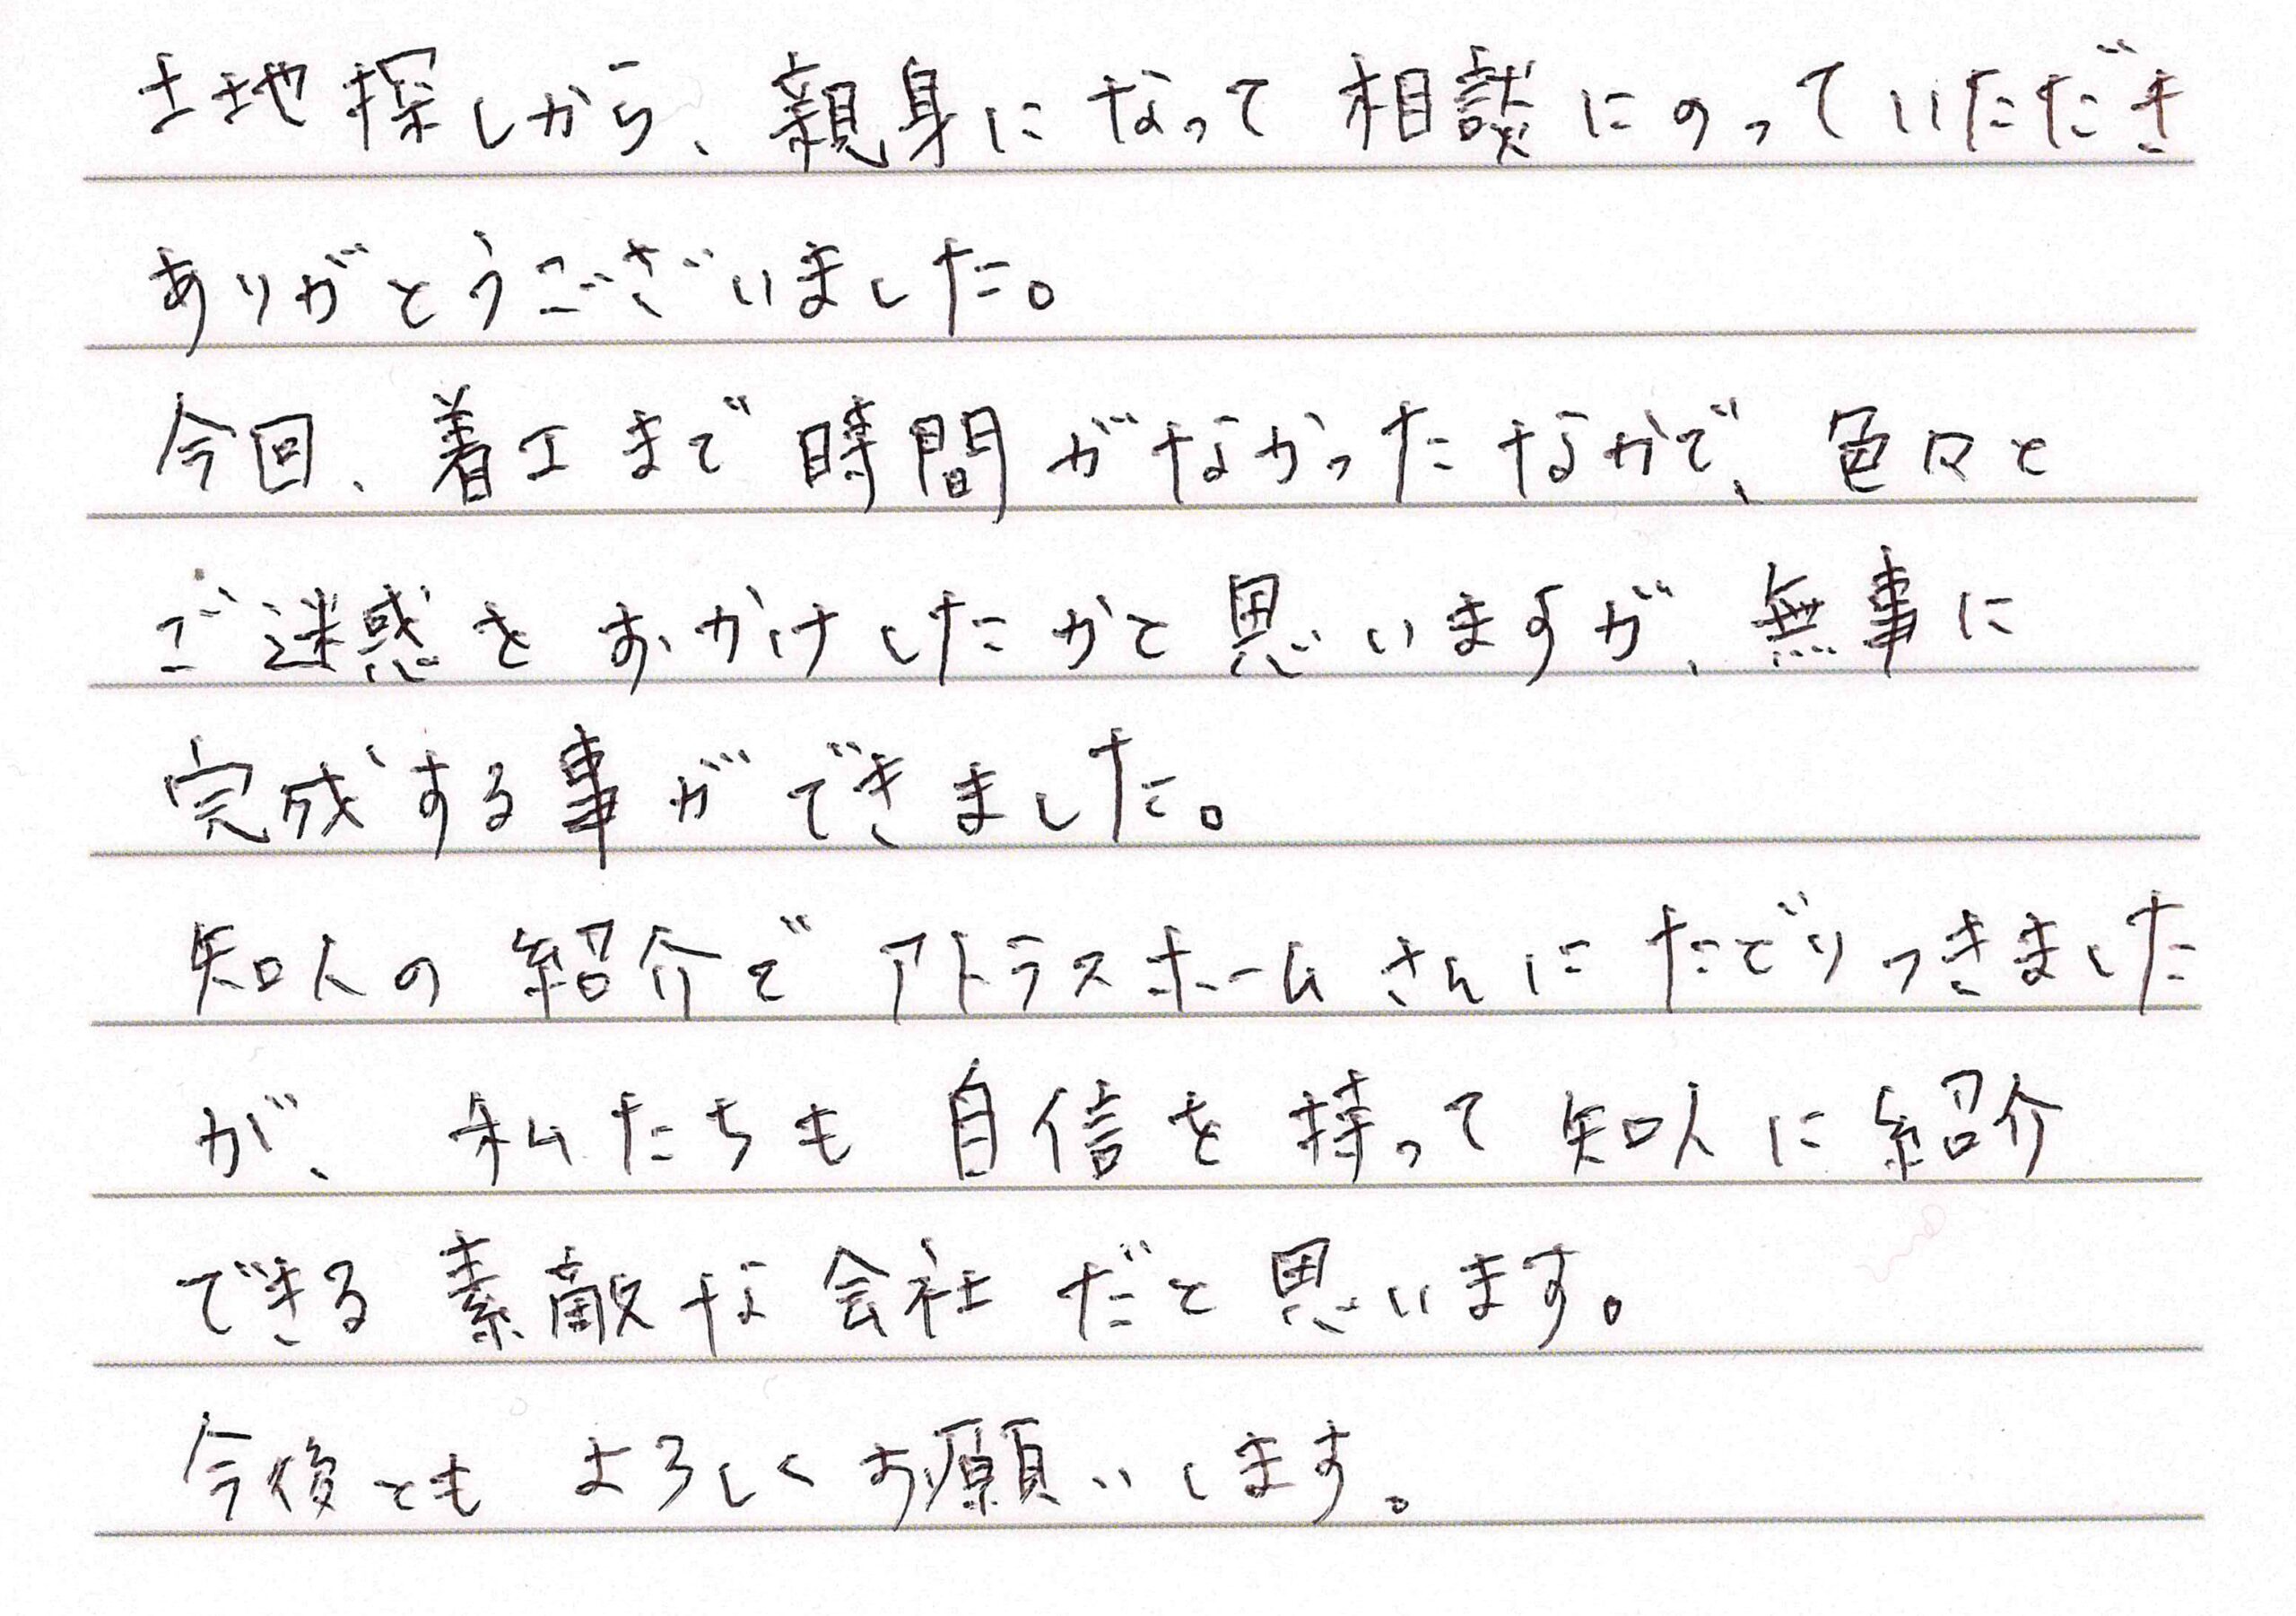 土地探しから、親身になって相談にのっていただき
ありがとうございました。
今回、着工まで時間がなかったなかで、色々と
ご迷惑をおかけしたかと思いますが、無事に
完成する事ができました。
知人の紹介でアトラスホームさんにたどりつきました
が、私たちも自信を持って知人に紹介
できる素敵な会社だと思います。
今後ともよろしくお願いします。